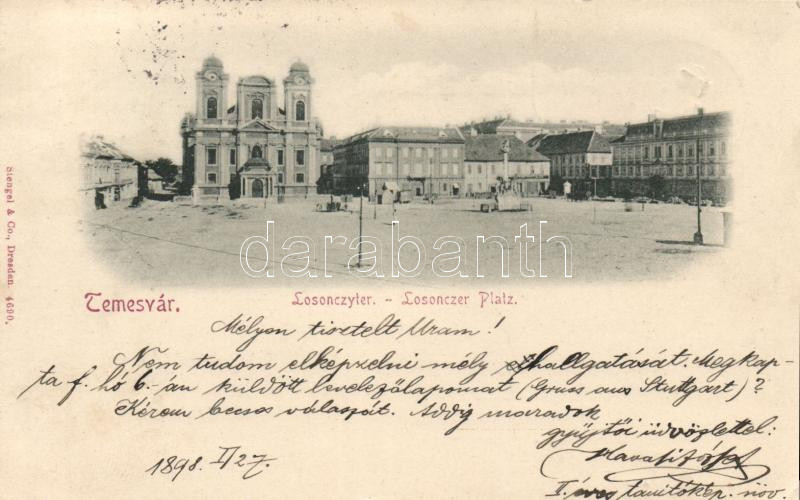 Stengel & Co., Dresden. 4690.
darabanth
Temesvár.
Losonczyter. - Losonczer Platz.
Mélyen tisztelt Uram!
Nem tudom elképzelni mély elhallgatását. Megkap-
ta f. hó 6.-án küldött levelezőlapomat (Gruss aus Stuttgart)?
Kérem becses válaszát. Addig maradok
gyűjtői üdvözlettel:
1898. II/27.
II. éves tanítókép. növ.